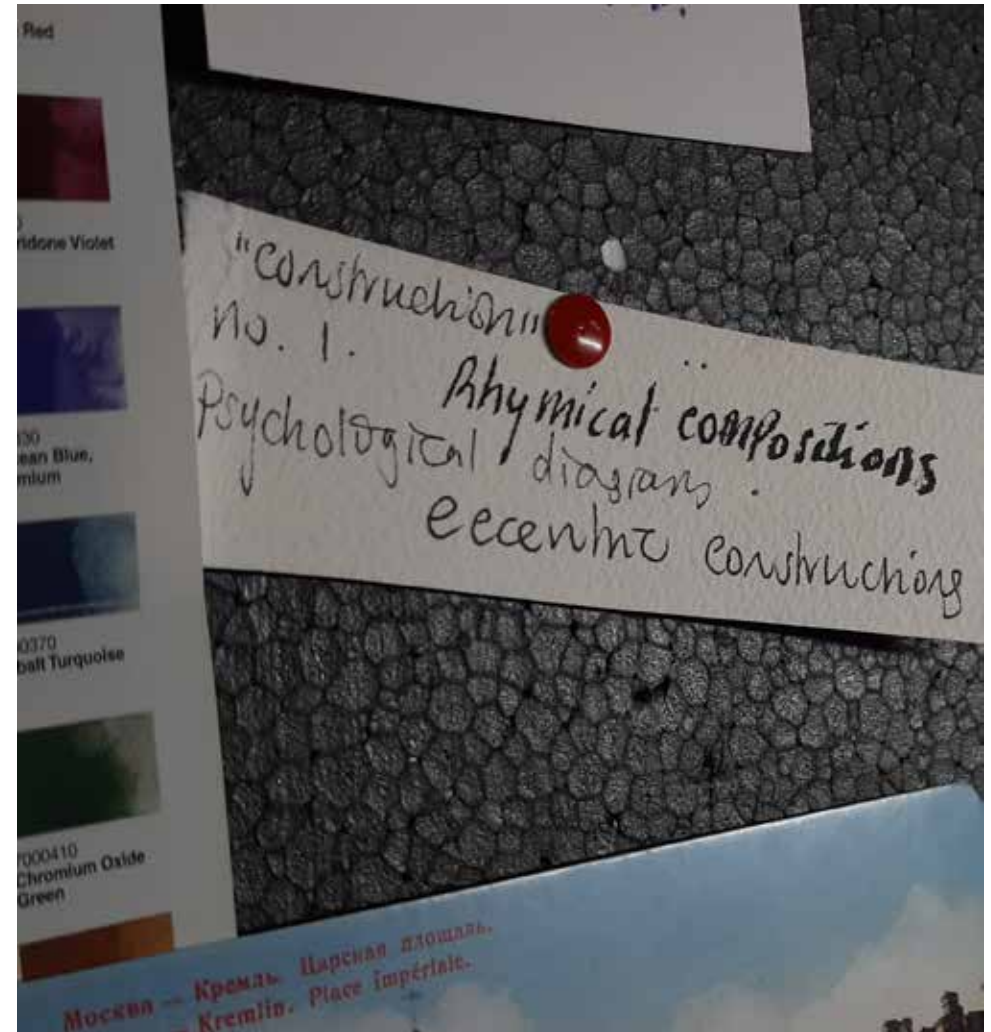 Red
ridone Violet
30
ean Blue,
mium
0370
balt Turquoise
7000410
Chromium Oxide
Green
"construction"
no. 1.
Rhymical compositions
Psychological diagrams.
eccentric constructions
Москва — Кремль. Царская площадь.
— Kremlin. Place impériale.